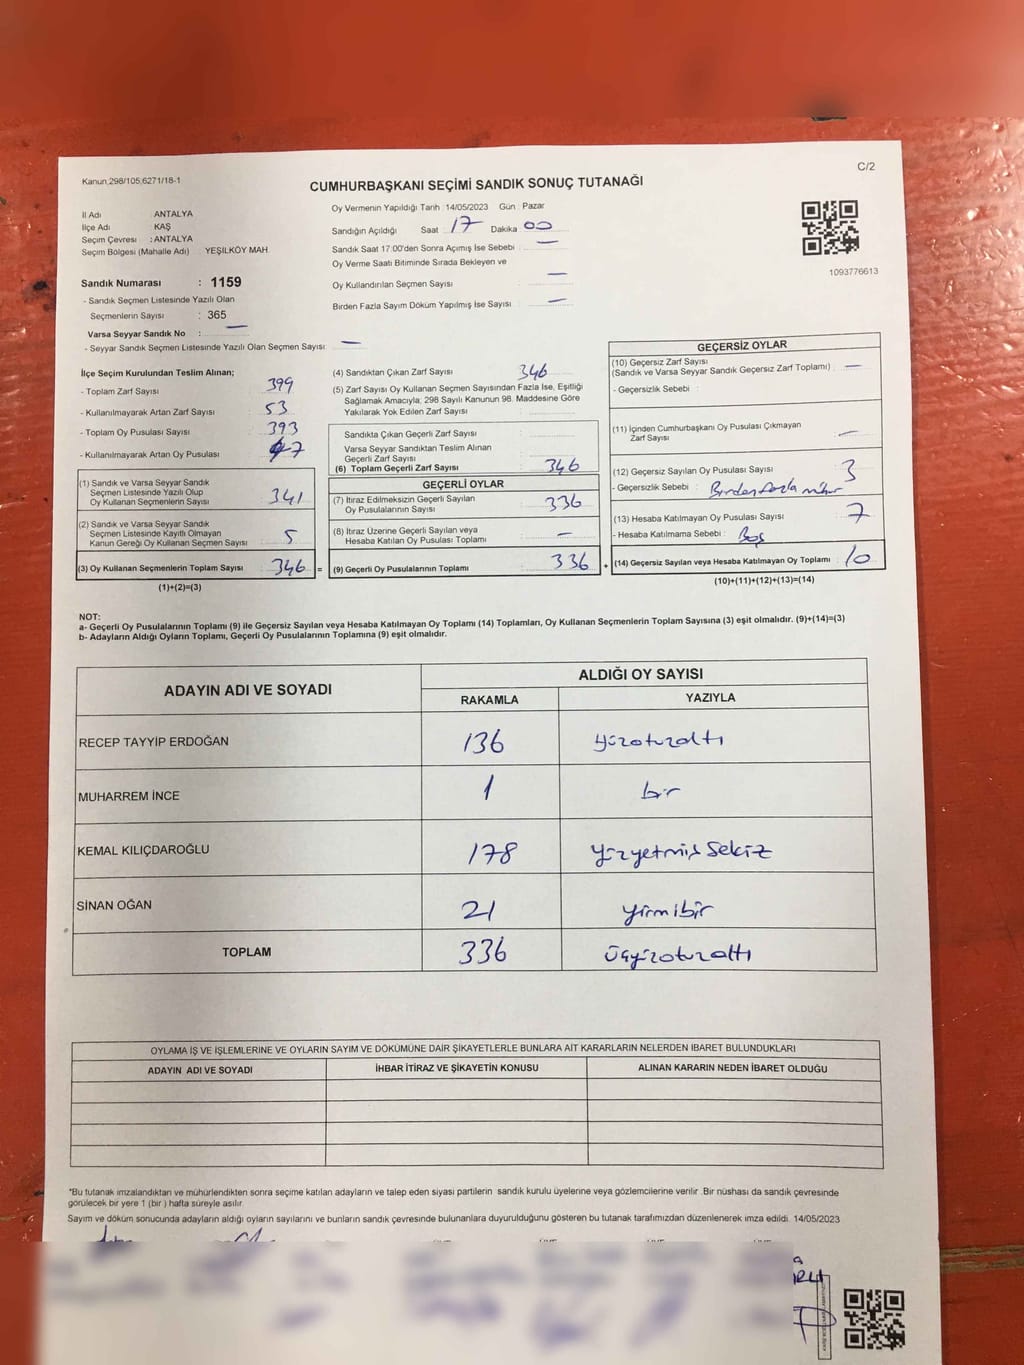 Kanun,298/105,6271/18-1
C/2
CUMHURBAŞKANI SEÇİMİ SANDIK SONUÇ TUTANAĞI
İl Adı ANTALYA
İlçe Adı KAŞ
Seçim Çevresi : ANTALYA
Seçim Bölgesi (Mahalle Adı) YEŞİLKÖY MAH.
Sandık Numarası : 1159
- Sandık Seçmen Listesinde Yazılı Olan
Seçmenlerin Sayısı : 365
Varsa Seyyar Sandık No : —
- Seyyar Sandık Seçmen Listesinde Yazılı Olan Seçmen Sayısı: —
Oy Vermenin Yapıldığı Tarih : 14/05/2023 Gün : Pazar
Sandığın Açıldığı Saat : 17 Dakika : 00
Sandık Saat 17:00'den Sonra Açımış İse Sebebi : —
Oy Verme Saati Bitiminde Sırada Bekleyen ve
Oy Kullandırılan Seçmen Sayısı : —
Birden Fazla Sayım Döküm Yapılmış İse Sayısı : —
1093776613
İlçe Seçim Kurulundan Teslim Alınan;
- Toplam Zarf Sayısı : 399
- Kullanılmayarak Artan Zarf Sayısı : 53
- Toplam Oy Pusulası Sayısı : 393
- Kullanılmayarak Artan Oy Pusulası : 47
(1) Sandık ve Varsa Seyyar Sandık
Seçmen Listesinde Yazılı Olup
Oy Kullanan Seçmenlerin Sayısı : 341
(2) Sandık ve Varsa Seyyar Sandık
Seçmen Listesinde Kayıtlı Olmayan
Kanun Gereği Oy Kullanan Seçmen Sayısı : 5
(3) Oy Kullanan Seçmenlerin Toplam Sayısı : 346 =
(1)+(2)=(3)
(4) Sandıktan Çıkan Zarf Sayısı : 346
(5) Zarf Sayısı Oy Kullanan Seçmen Sayısından Fazla İse, Eşitliği
Sağlamak Amacıyla; 298 Sayılı Kanunun 98. Maddesine Göre
Yakılarak Yok Edilen Zarf Sayısı :
Sandıkta Çıkan Geçerli Zarf Sayısı :
Varsa Seyyar Sandıktan Teslim Alınan
Geçerli Zarf Sayısı :
(6) Toplam Geçerli Zarf Sayısı : 346
GEÇERLİ OYLAR
(7) İtiraz Edilmeksizin Geçerli Sayılan
Oy Pusulalarının Sayısı : 336
(8) İtiraz Üzerine Geçerli Sayılan veya
Hesaba Katılan Oy Pusulası Toplamı : —
(9) Geçerli Oy Pusulalarının Toplamı : 336 +
GEÇERSİZ OYLAR
(10) Geçersiz Zarf Sayısı
(Sandık ve Varsa Seyyar Sandık Geçersiz Zarf Toplamı) : —
- Geçersizlik Sebebi :
(11) İçinden Cumhurbaşkanı Oy Pusulası Çıkmayan
Zarf Sayısı : —
(12) Geçersiz Sayılan Oy Pusulası Sayısı : 3
- Geçersizlik Sebebi : Birden fazla mühür
(13) Hesaba Katılmayan Oy Pusulası Sayısı : 7
- Hesaba Katılmama Sebebi : Boş
(14) Geçersiz Sayılan veya Hesaba Katılmayan Oy Toplamı : 10
(10)+(11)+(12)+(13)=(14)
NOT:
a- Geçerli Oy Pusulalarının Toplamı (9) ile Geçersiz Sayılan veya Hesaba Katılmayan Oy Toplamı (14) Toplamları, Oy Kullanan Seçmenlerin Toplam Sayısına (3) eşit olmalıdır. (9)+(14)=(3)
b- Adayların Aldığı Oyların Toplamı, Geçerli Oy Pusulalarının Toplamına (9) eşit olmalıdır.
ADAYIN ADI VE SOYADI ALDIĞI OY SAYISI
RAKAMLA YAZIYLA
RECEP TAYYİP ERDOĞAN 136 yüzotuzaltı
MUHARREM İNCE 1 bir
KEMAL KILIÇDAROĞLU 178 yüzyetmiş sekiz
SİNAN OĞAN 21 yirmibir
TOPLAM 336 üçyüzotuzaltı
OYLAMA İŞ VE İŞLEMLERİNE VE OYLARIN SAYIM VE DÖKÜMÜNE DAİR ŞİKAYETLERLE BUNLARA AİT KARARLARIN NELERDEN İBARET BULUNDUKLARI
ADAYIN ADI VE SOYADI İHBAR İTİRAZ VE ŞİKAYETİN KONUSU ALINAN KARARIN NEDEN İBARET OLDUĞU
*Bu tutanak imzalandıktan ve mühürlendikten sonra seçime katılan adayların ve talep eden siyasi partilerin sandık kurulu üyelerine veya gözlemcilerine verilir .Bir nüshası da sandık çevresinde
görülecek bir yere 1 (bir ) hafta süreyle asılır.
Sayım ve döküm sonucunda adayların aldığı oyların sayılarını ve bunların sandık çevresinde bulunanlara duyurulduğunu gösteren bu tutanak tarafımızdan düzenlenerek imza edildi. 14/05/2023